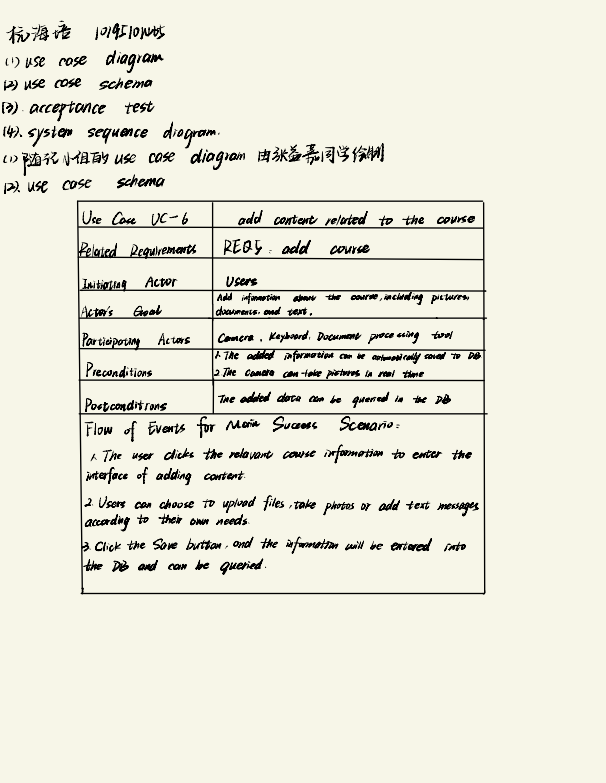 杭海培 1019510445
(1) use case diagram
(2) use case schema
(3). acceptance test
(4). system sequence diagram.
(1) 随记小组的 use case diagram 由张益嘉同学绘制
(2). use case schema
Use Case UC-6 add content related to the course
Related Requirements REQ5: add course
Initiating Actor Users
Actor's Goal Add information about the course, including pictures, documents, and text.
Participating Actors Camera, Keyboard, Document processing tool
Preconditions 1. The added information can be automatically saved to DB
2. The camera can take pictures in real time
Postconditions The added data can be queried in the DB
Flow of Events for Main Success Scenario:
1. The user clicks the relavant course information to enter the
interface of adding content.
2. Users can choose to upload files, take photos or add text messages
according to their own needs.
3. Click the Save button, and the information will be entered into
the DB and can be queried.